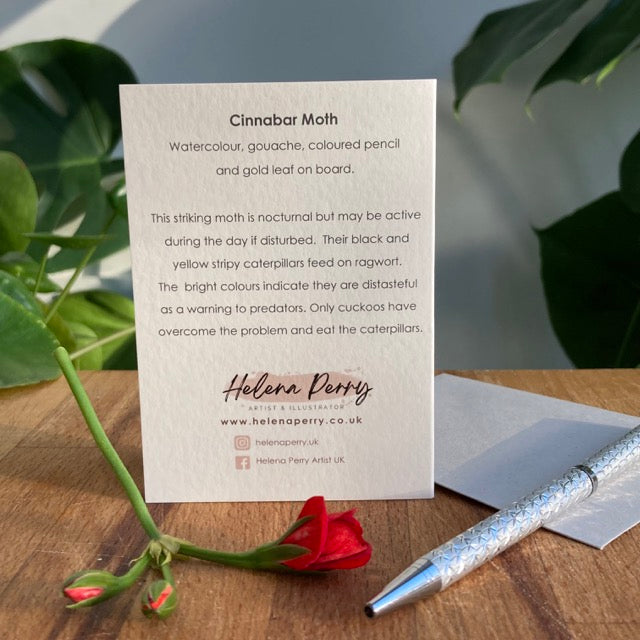 Cinnabar Moth
Watercolour, gouache, coloured pencil
and gold leaf on board.
This striking moth is nocturnal but may be active
during the day if disturbed. Their black and
yellow stripy caterpillars feed on ragwort.
The bright colours indicate they are distasteful
as a warning to predators. Only cuckoos have
overcome the problem and eat the caterpillars.
Helena Perry
ARTIST & ILLUSTRATOR
www.helenaperry.co.uk
helenaperry.uk
Helena Perry Artist UK